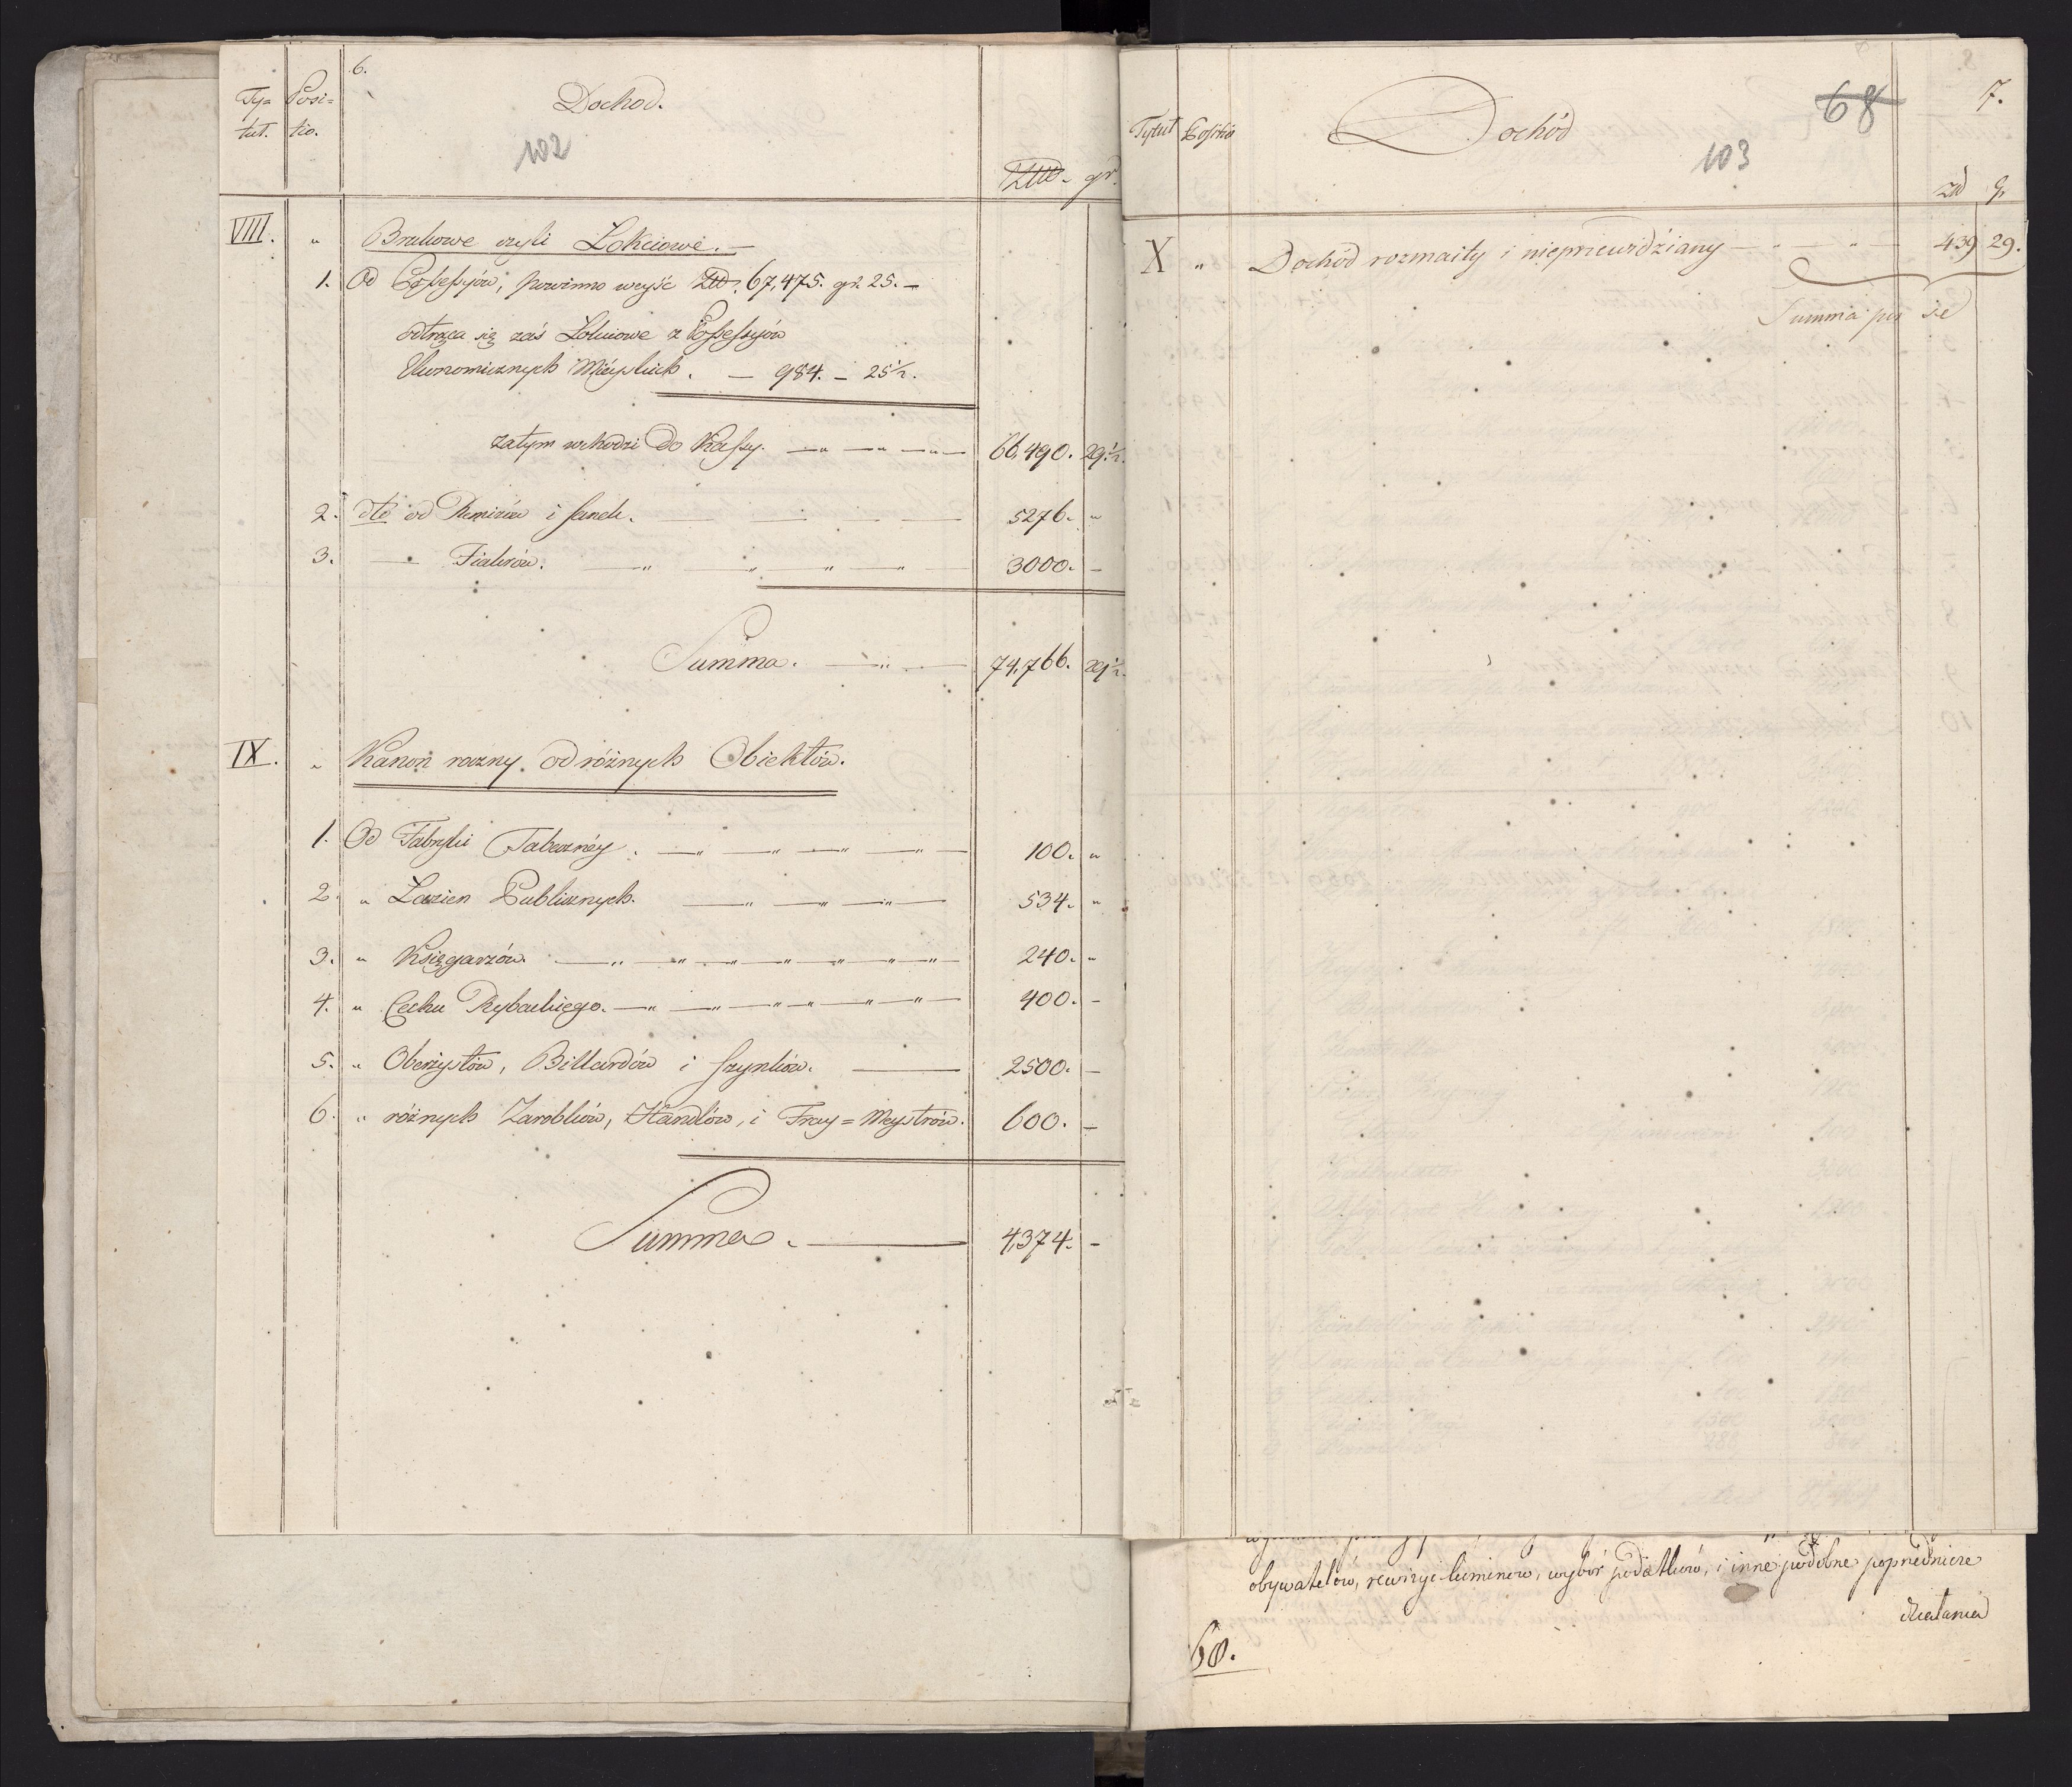 6.
Ty= Posi= Dochod.
tuł. tio.
102
Złł. gr.
VIII. „ Brukowe czyli Łokciowe. —
1. Od Possessyów, powinno weyść Złł. 67,475. gr. 25. —
odtrąca się zaś Łokciowe z Possessyów
Ekonomicznych Mieyskich. — 984. — 25½.
zatym wchodzi Do Kassy. 66,490. 29½.
2. dto od Remizów i sanek. 5276. „
3. — Fiakrów. 3000. —
Summa. 74,766. 29½.
IX. „ Kanon roczny od różnych Obiektów.
1. Od Fabryki Tabaczney. 100. „
2. „ Łazien Publicznych. 534. „
3. „ Księgarzów. 240. „
4. „ Cechu Rybackiego. 400. —
5. „ Oberżystów, Billardów i szynków. 2500. —
6. „ różnych Zarobków, Handlów, i Frey=Meystrów. 600. —
Summa. 4,374. —
68 7.
Tytuł Positio Dochód
103
zł g.
X „ Dochód rozmaity i nieprzewidziany 439 29.
Summa per se
obywatelów, rewizye kominów, wybór podatków, i inne podobne poprzednicze
działania
68.